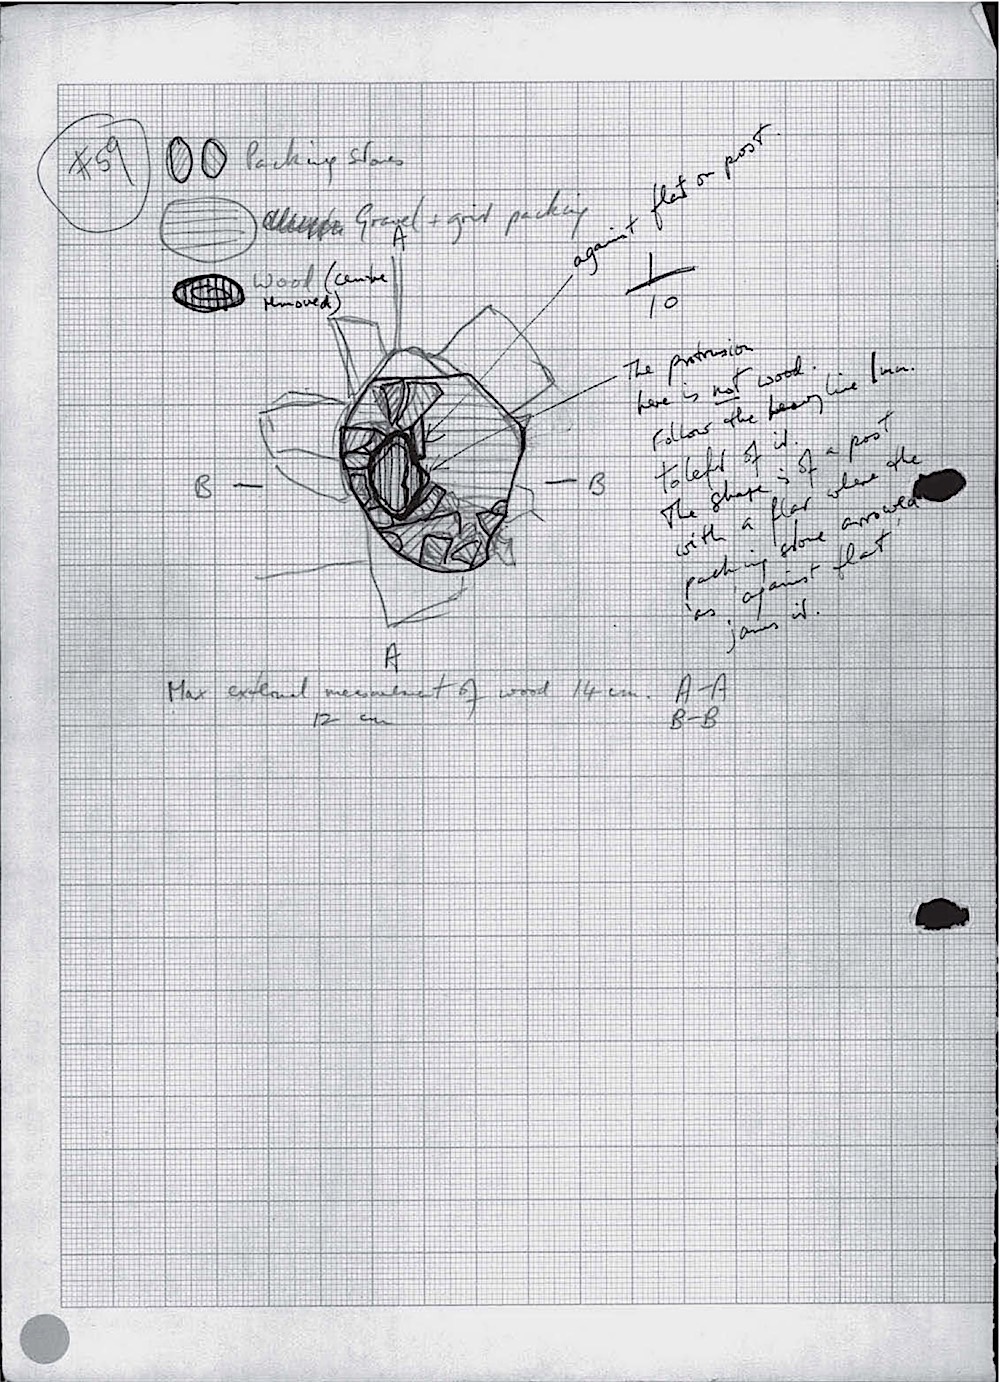 #59
Packing stones
Gravel + grit packing
Wood (centre
removed)
against flat on post.
1
10
A
The protrusion
here is not wood.
Follow the heavy line 1mm.
to left of it.
The shape is of a post
with a flat where the
packing stone arrowed
'as 'against flat'
jams it.
B
B
A
Max external measurement of wood 14 cm. A-A
12 cm B-B